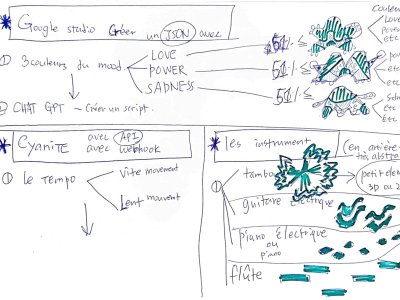 * Google studio Créer un JSON avec
① 3 couleurs du mood
LOVE
POWER
SADNESS
51% ≤
51% ≤
51% ≤
couleu
Love
power
etc
etc
etc
② CHAT GPT - Créer un script.
* CyaniTE avec API
avec webhook
① le Tempo
Vite movement
Lent mouvent
* les instrument
(en arrière
très abstra
① tambo
petit éle
3D ou 2
guitare électrique
piano électrique
ou
piano
flûte